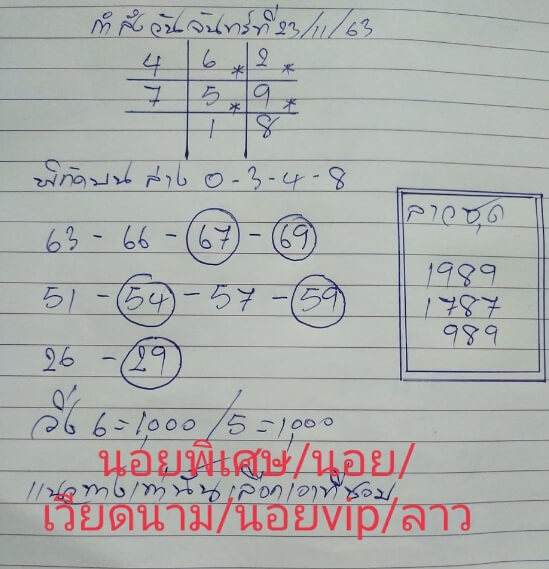 วันจันทร์ที่ 23/11/63
4 6 * 2 *
7 5 * 9 *
1 8
บน ล่าง 0-3-4-8
63 - 66 - 67 - 69
51 - 54 - 57 - 59
26 - 29
ลาวชุด
1989
1787
989
วิ่ง 6=1,000 / 5=1,000
นอยพิเศษ/นอย/
แนวทางเท่านั้นเลือกเอาที่ชอบ
เวียดนาม/นอยvip/ลาว